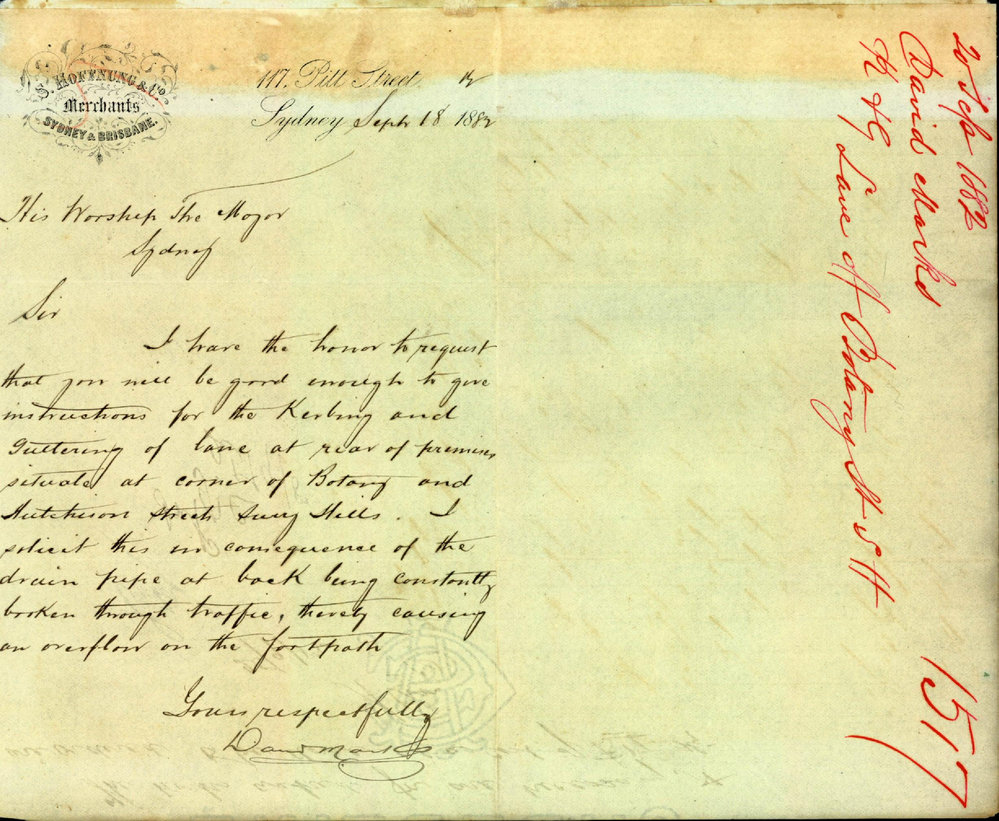 S. HOFFNUNG & Co.
Merchants
SYDNEY & BRISBANE.
117. Pitt Street
Sydney Septr 18 1882
His Worship The Mayor
Sydney
Sir
I have the honor to request
that you will be good enough to give
instructions for the Kerbing and
Guttering of lane at rear of premises
situate at corner of Botany and
Hutchison streets Surry Hills. I
solicit this in consequence of the
drain pipe at back being constantly
broken through traffic, thereby causing
an overflow on the footpath
Yours respectfully
David Marks
20 Sep 1882
David Marks
K & G Lane off Botany St S H
1517